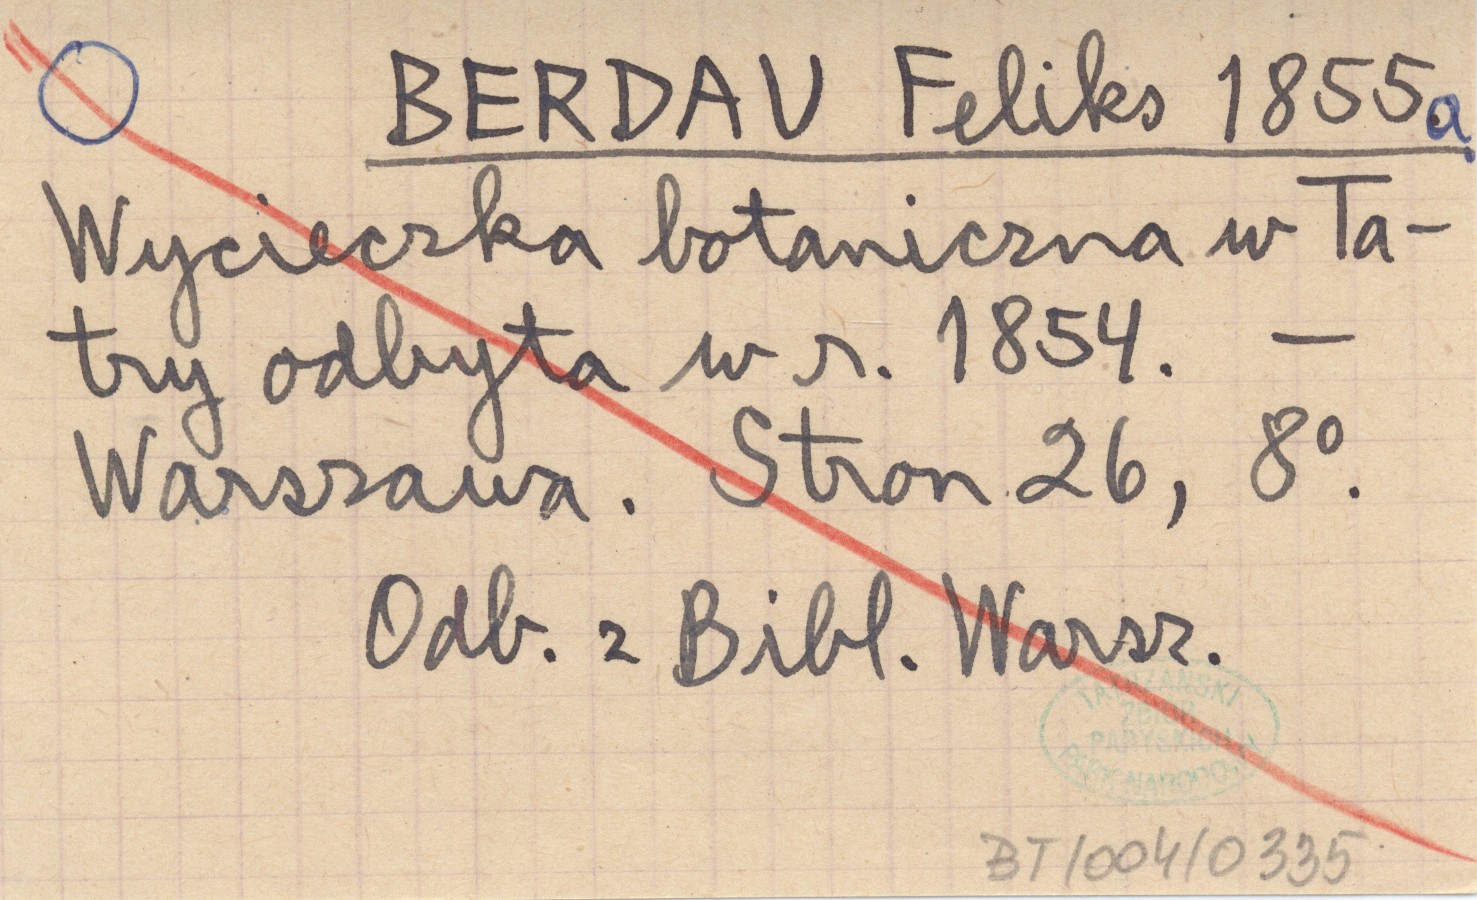 BERDAU Feliks 1855a.
Wycieczka botaniczna w Ta-
try odbyta w r. 1854. —
Warszawa. Stron 26, 8º.
Odb. z Bibl. Warsz.
TATRZAŃSKI
ZBIÓR
PARYSKICH
PARK NARODOWY
BT/004/0335